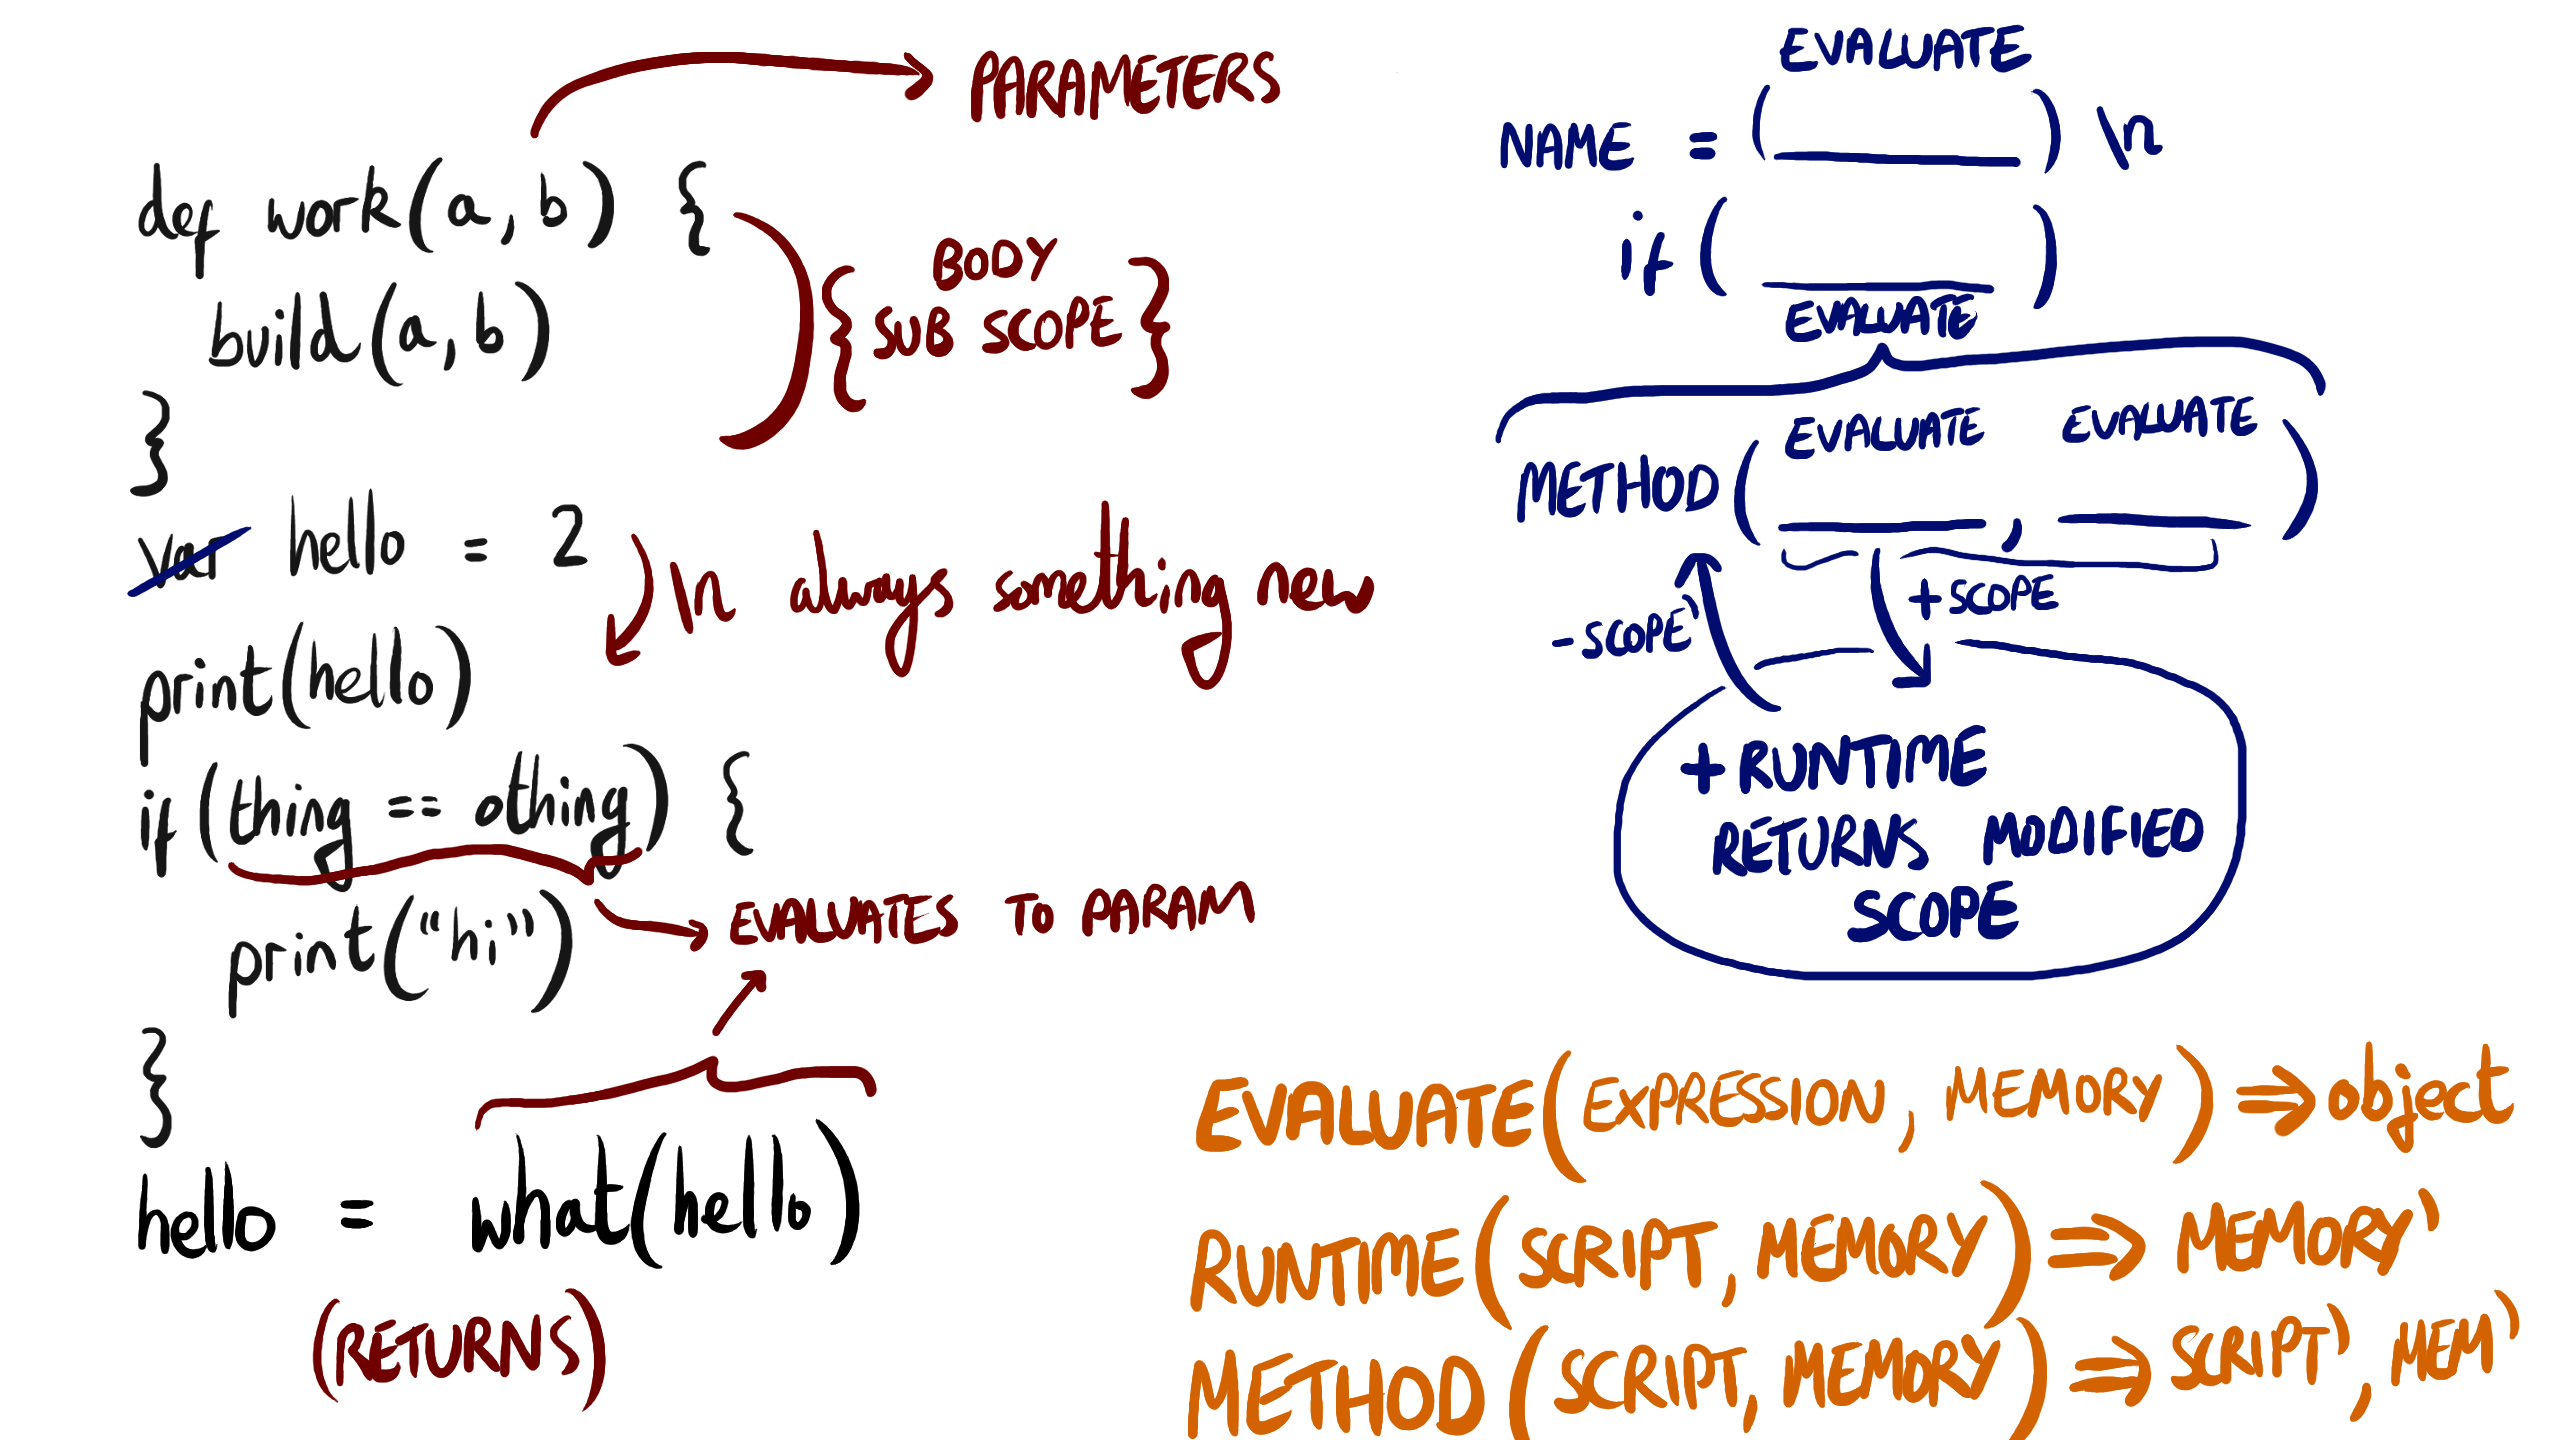 PARAMETERS
def work(a, b) {
build(a, b)
}
{ BODY
SUB SCOPE }
var hello = 2
\n always something new
print(hello)
if (thing == othing) {
EVALUATES TO PARAM
print("hi")
}
hello = what(hello)
(RETURNS)
EVALUATE
NAME = (____) \n
if (____)
EVALUATE
EVALUATE EVALUATE
METHOD(____, ____)
+ SCOPE
- SCOPE'
+ RUNTIME
RETURNS MODIFIED
SCOPE
EVALUATE(EXPRESSION, MEMORY) ⇒ object
RUNTIME(SCRIPT, MEMORY) ⇒ MEMORY'
METHOD(SCRIPT, MEMORY) ⇒ SCRIPT', MEM'